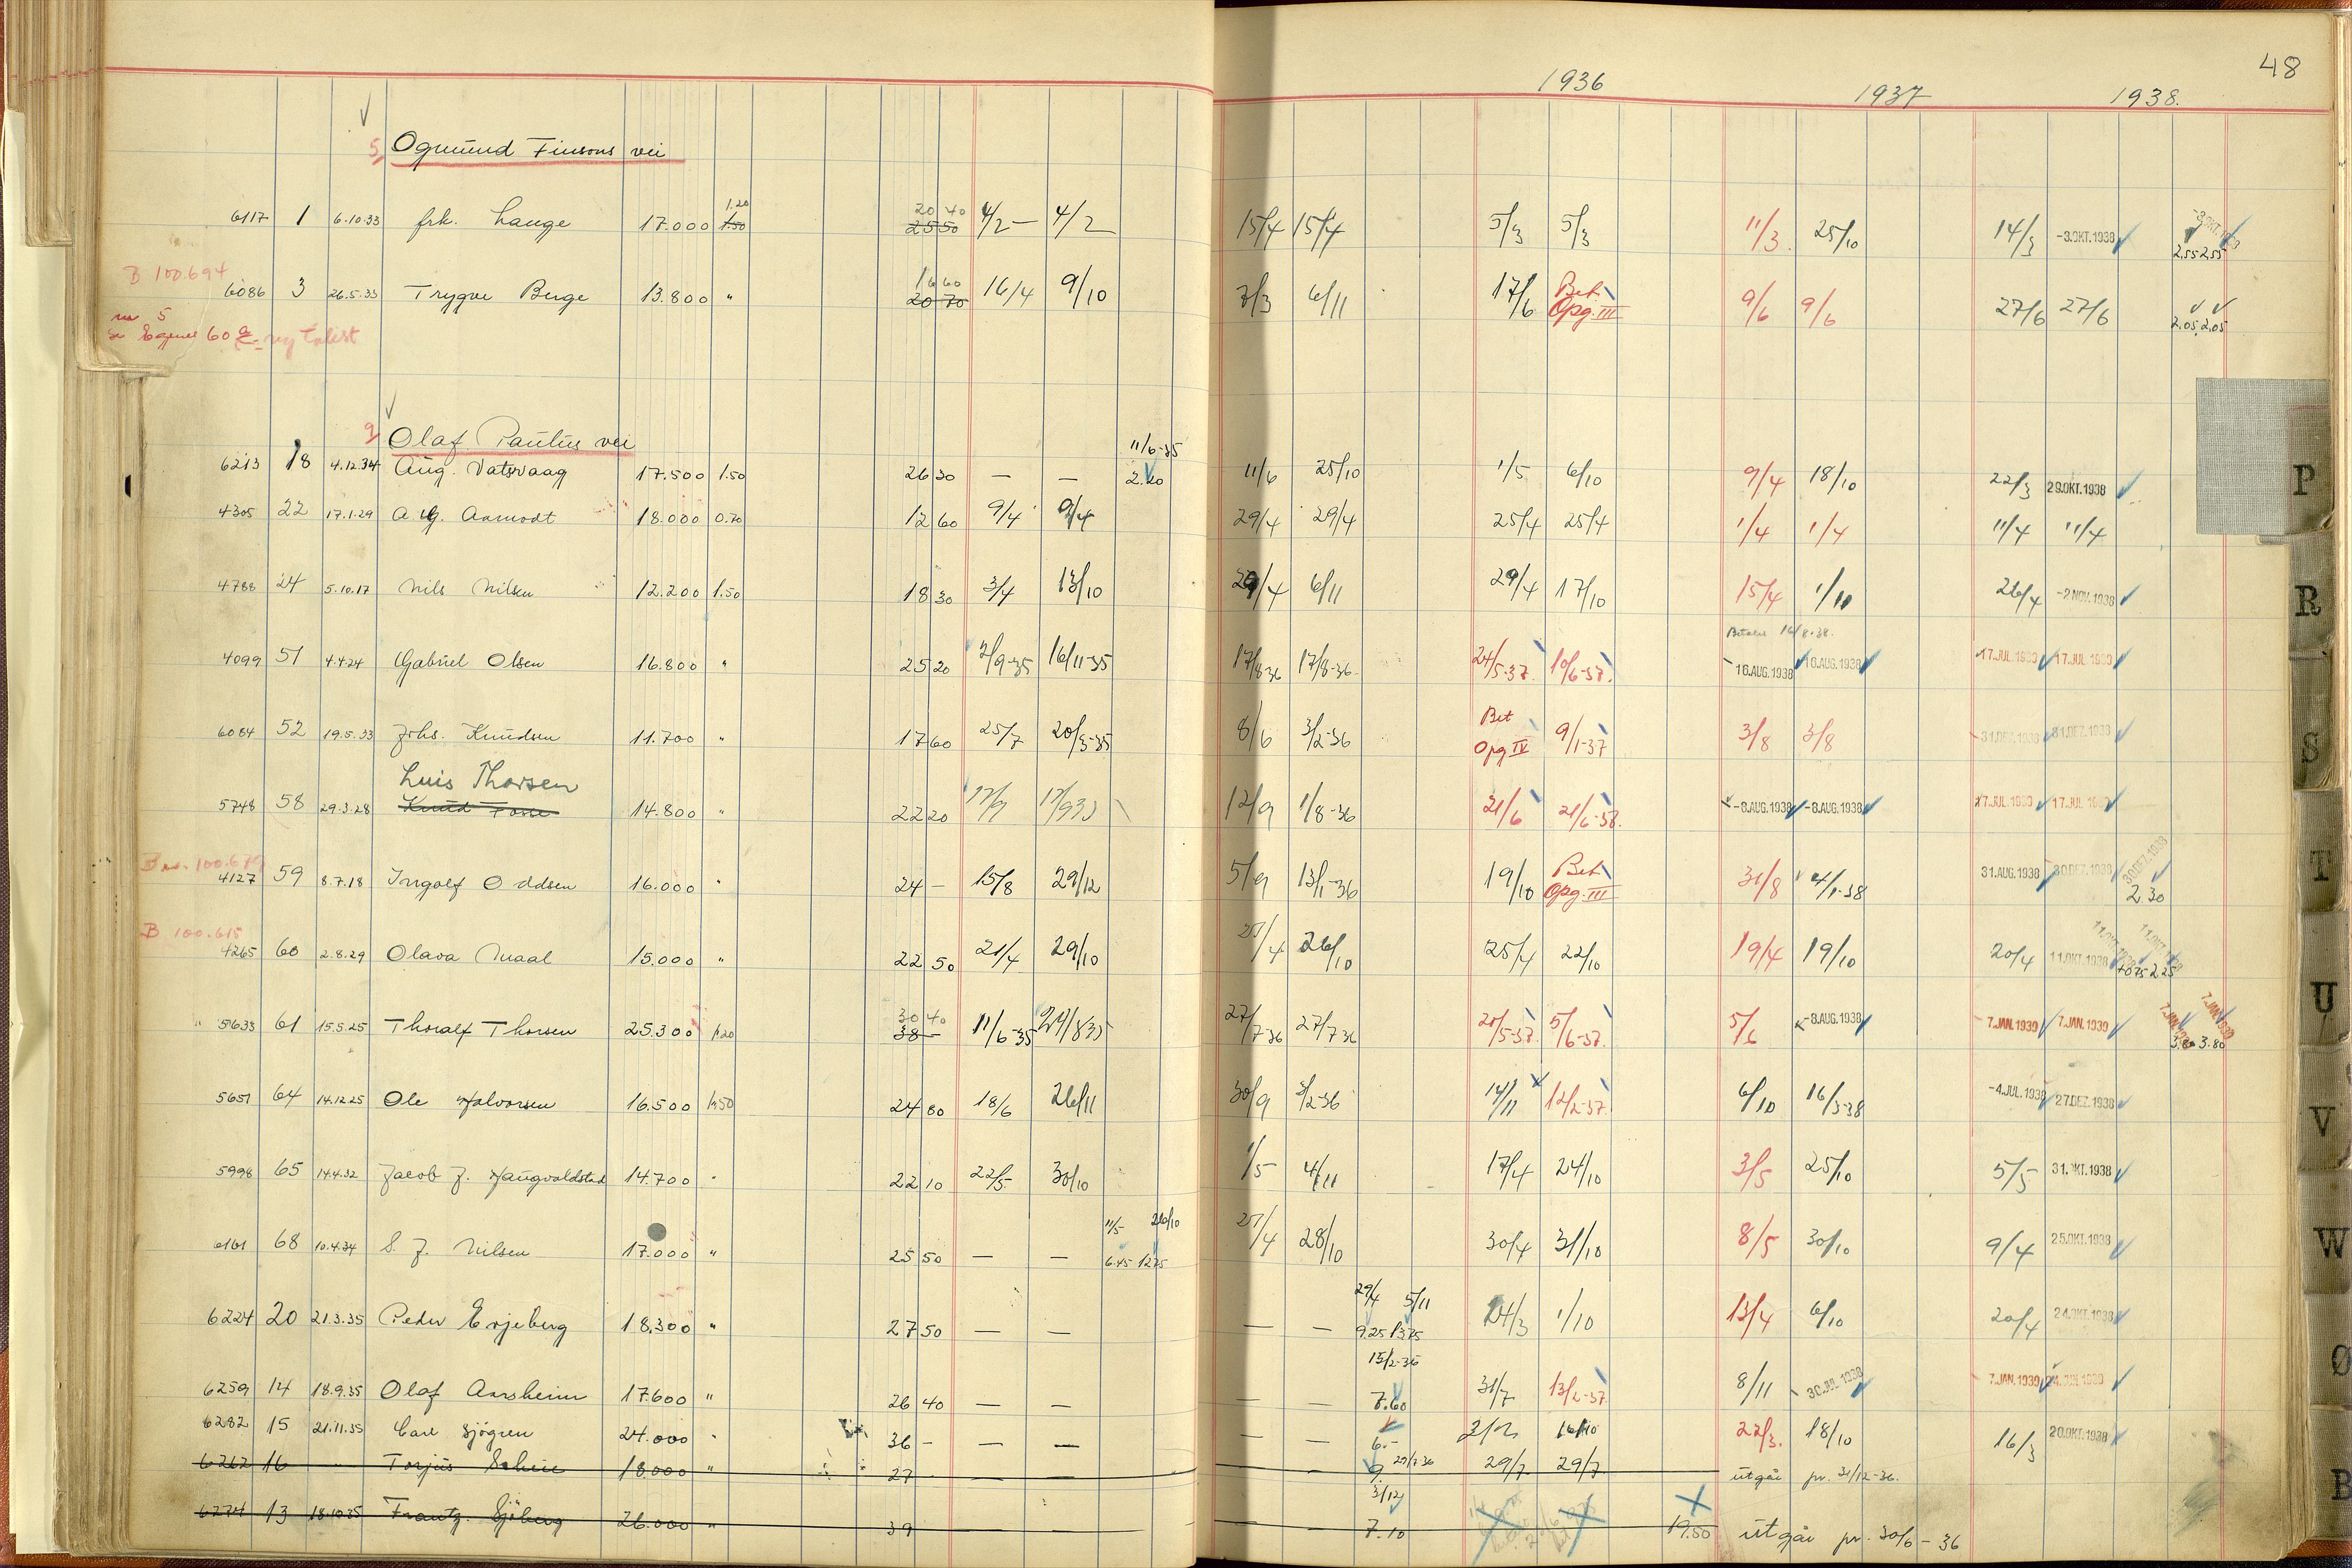 48
1936 1937 1938.
5 Ogmund Finsons vei
6117 1 6.10.33 frk. Lange 17.000 1.20 1.50 20 40 25 50 4/2 — 4/2 15/4 15/4 5/3 5/3 11/3. 25/10 14/3 -3.OKT.1938 2.55 2.55
B 100.694
6086 3 26.5.33 Trygve Berge 13.800 " 16 60 20 70 16/4 9/10 7/3 6/11 17/6 Bet. Opg. III 9/6 9/6 27/6 27/6 2.05 2.05
5
60 ny
9 Olaf Paulus vei
6213 18 4.12.34 Aug. Vatsvaag 17.500 1.50 26 30 — — 11/6-35 2.20 11/6 25/10 1/5 6/10 9/4 18/10 22/3 29.OKT.1938
4305 22 17.1.29 A. G. Aamodt 18.000 0.70 12 60 9/4 9/4 29/4 29/4 25/4 25/4 1/4 1/4 11/4 11/4
4788 24 5.10.17 Nils Nilsen 12.200 1.50 18 30 3/4 13/10 29/4 6/11 29/4 17/10 15/4 1/11 26/4 -2 NOV.1938
Betaler 16/8.38.
4099 51 4.4.24 Gabriel Olsen 16.800 " 25 20 2/9-35 16/11-35 17/8-36 17/8-36 24/5-37 10/6-37. 16.AUG.1938 16.AUG.1938 17.JUL.1939 17.JUL.1939
6084 52 19.5.33 Johs. Knudsen 11.700 " 17 60 25/7 20/3-35 8/6 3/2-36 Bet Opg IV 9/1-37 3/8 3/8 31.DEZ.1938 31.DEZ.1938
Luis Thorsen
5748 58 29.3.28 Knud Fosse 14.800 " 22 20 12/9 1/8-36 21/6 21/6-38. -8.AUG.1938 -8.AUG.1938 17.JUL.1939 17.JUL.1939
B nr. 100.679
4127 59 8.7.18 Ingolf Oddsen 16.000 " 24 — 15/8 29/12 5/9 13/1-36 19/10 Bet. Opg. III 31/8 4/1-38 31.AUG.1938 30.DEZ.1938 30.DEZ.1938 2.30
B 100.615
4265 60 2.8.29 Olava Maal 15.000 " 22 50 21/4 29/10 26/10 25/4 22/10 19/4 19/10 20/4 11.OKT.1938 11.OKT.1938 11.OKT.1938 +075 2.25
" 5633 61 15.5.25 Thoralf Thorsen 25.300 1.20 30 40 38 — 11/6-35 24/8 35 27/7-36 27/7 36 20/5-37. 5/6-37. 5/6 -8.AUG.1938 7.JAN.1939 7.JAN.1939 7.JAN.1939 7.JAN.1939 3.80 3.80
5651 64 14.12.25 Ole Halvorsen 16.500 1.50 24 80 18/6 26/11 30/9 3/2-36 14/11 12/2-37. 6/10 16/3-38 -4.JUL.1938 27.DEZ.1938
5998 65 14.4.32 Jacob J. Haugvaldstad 14.700 " 22 10 22/5 30/10 1/5 4/11 17/4 24/10 3/5 25/10 5/5 31.OKT.1938
6161 68 10.4.34 S. J. Nilsen 17.000 " 25 50 — — 11/5 26/10 6.45 12.75 28/10 30/4 31/10 8/5 30/10 9/4 25.OKT.1938
6224 20 21.3.35 Peder Erjeberg 18.300 " 27 50 — — — — 29/4 5/11 9.25 13.75 24/3 1/10 13/4 6/10 20/4 24.OKT.1938
6259 14 18.9.35 Olaf Aarsheim 17.600 " 26 40 — — — — 15/2-36 7.60 31/7 13/2-37. 8/11 30.JUL.1938 7.JAN.1939
6282 15 21.11.35 Carl Sjögren 24.000 " 36 — — — — — 6.— 16/10 22/3. 18/10 16/3 20.OKT.1938
6262 16 Torjus 18.000 " 27 — — — — 9. 29/7 29/7 utgår pr. 31/12-36.
6274 13 18.10.35 Frantz Sjöberg 26.000 " 39 — — — — 3/12 7.10 19.50 utgår pr. 30/6 - 36
P
R
S
T
U
V
W
Ø
B